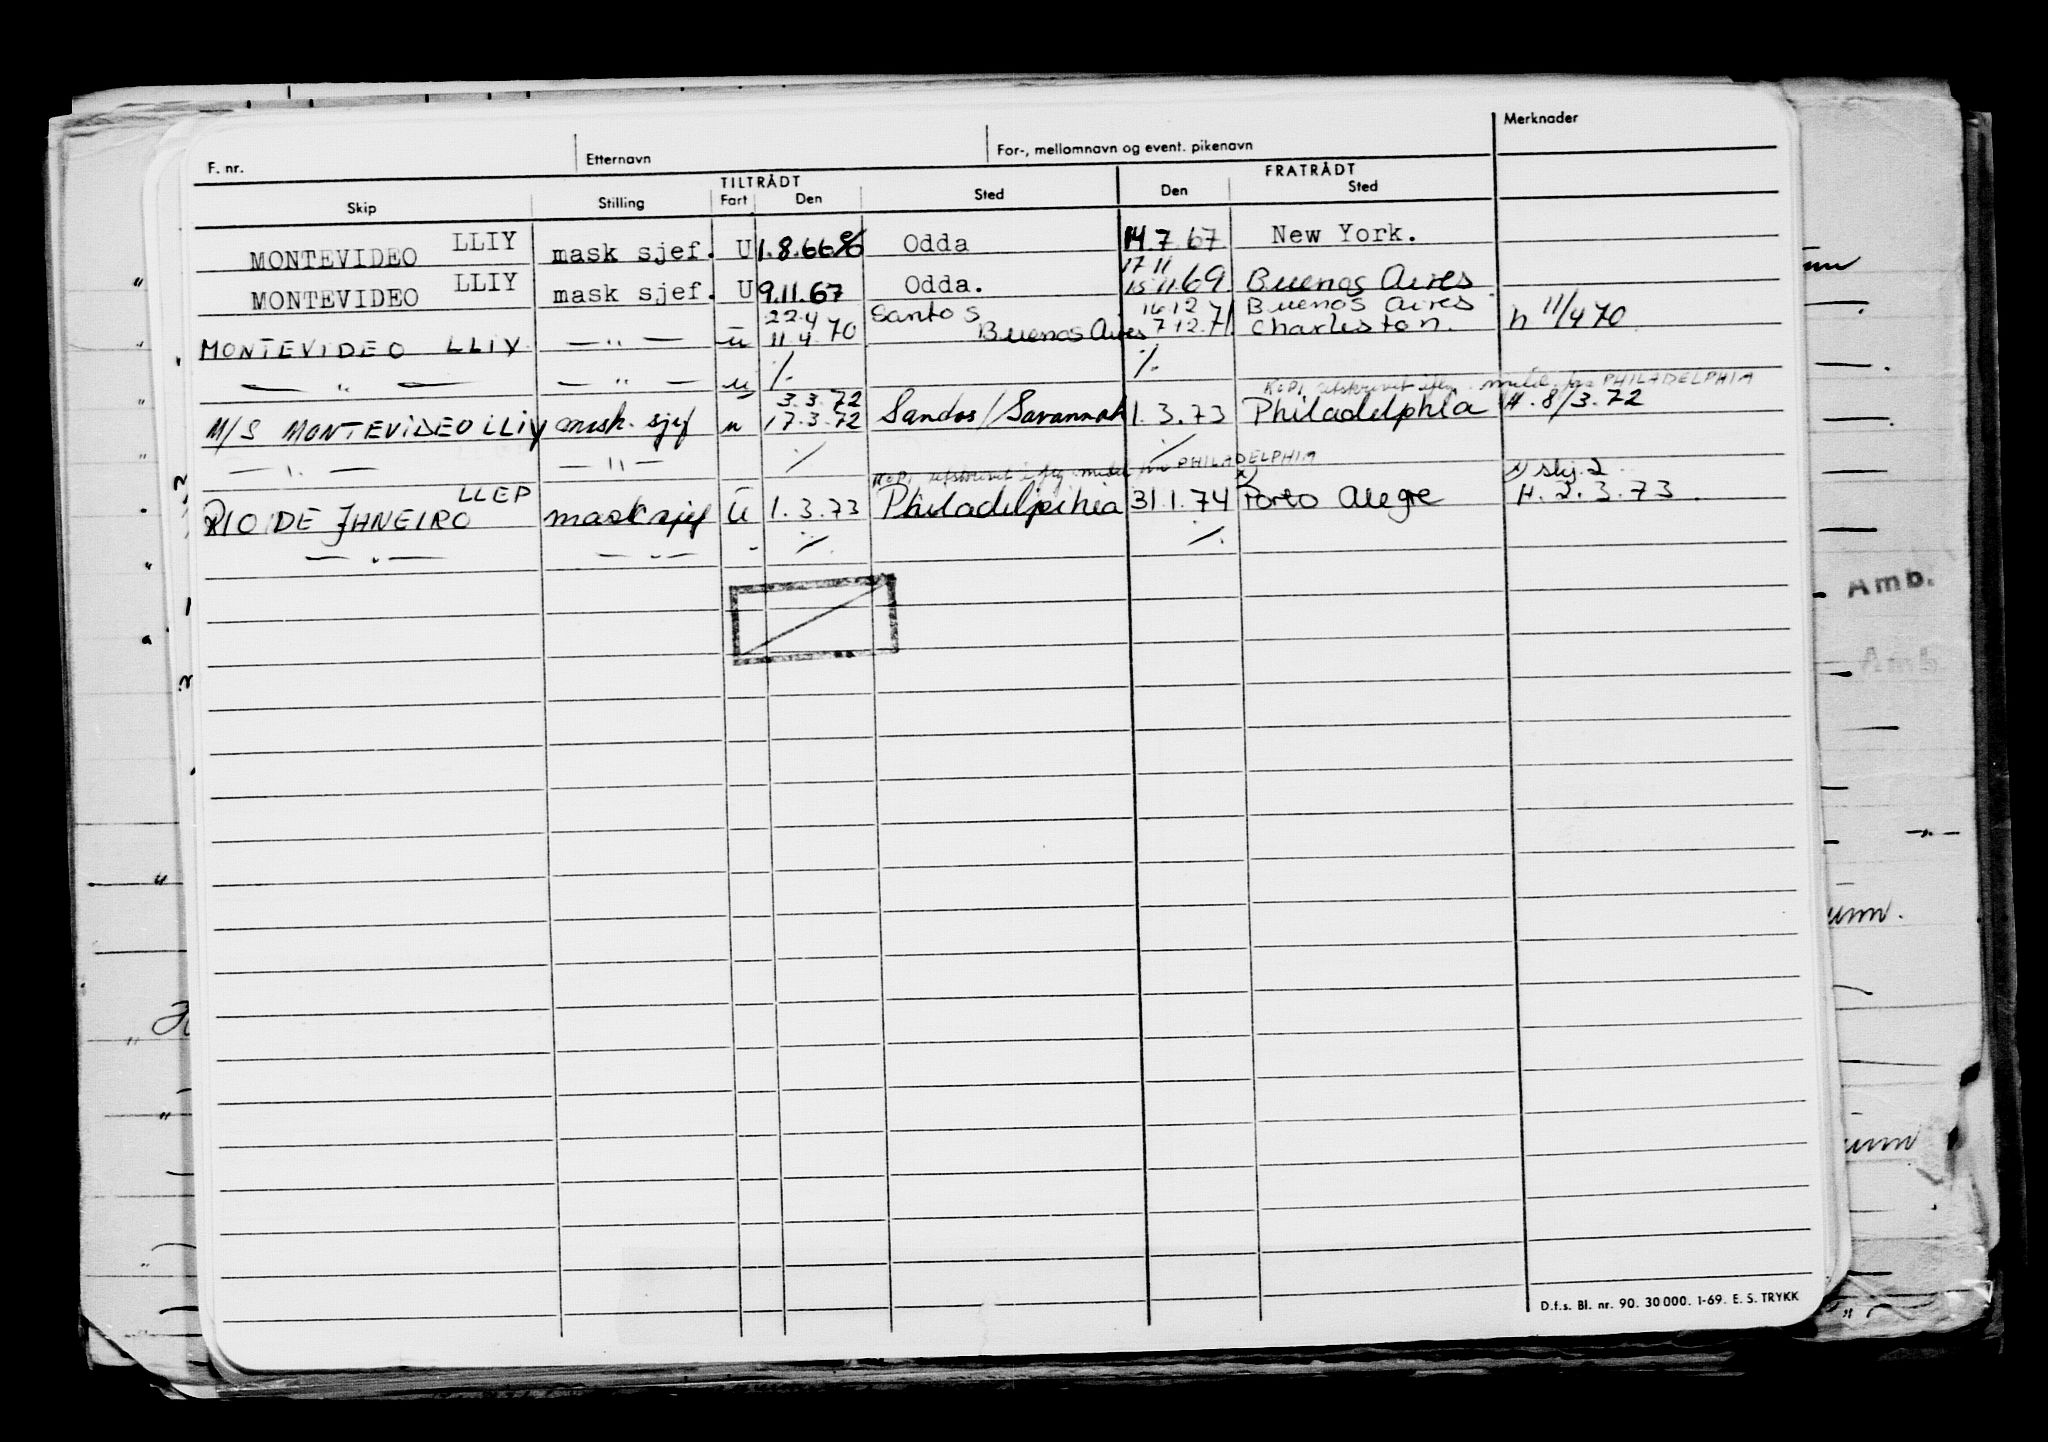 F. nr. Etternavn For-, mellomnavn og event. pikenavn Merknader
TILTRÅDT FRATRÅDT
Skip Stilling Fart Den Sted Den Sted
MONTEVIDEO LLIY mask sjef. U 1.8.66 Odda 14.7.67 New York.
17 11
MONTEVIDEO LLIY mask sjef. U 9.11.67 Odda. 15.11.69 Buenos Aires
22.4 Santos 16.12 71 Buenos Aires
MONTEVIDEO LLIY — " — u 11.4 70 Buenos Aires 7.12.71. Charleston. h 11/4 70
— " — — " — u ./. ./.
3.3.72 KOPI PHILADELPHIA
M/S MONTEVIDEO LLIY mask. sjef u 17.3.72 Sandos/Savannah 1.3.73 Philadelphia H. 8/3.72
— " — — " — ./. ./.
KOPI PHILADELPHIA x) x) skj. 2
RIO DE JANEIRO LLEP mask sjef u 1.3.73 Philadelpihia 31.1.74 Porto Alegre H. 2.3.73.
— " — — " — - ./. ./.
Amb.
Amb.
D.f.s. Bl. nr. 90. 30 000. 1-69. E. S. TRYKK